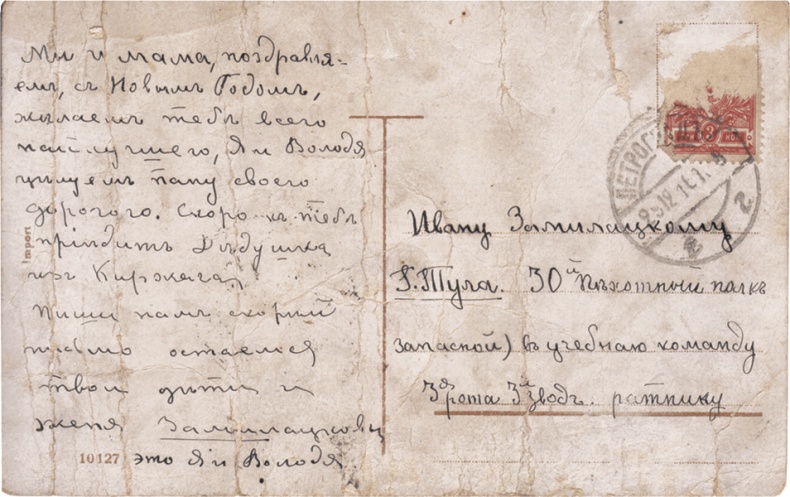 Мы и мама, поздравля-
емъ, съ Новымъ Годомъ,
жылаемъ тебѣ всего
найлучшего, Я и Володя
цилуемъ папу своего
дорогого. Скоро къ тебѣ
пріѣдитъ Дѣдушка
изъ
Пиши намъ скорий
письмо остаемся
твои дѣти и
женя Замилацковы
это Я и Володя
Import
10127
ПЕТРОГРАДЪ
3
2
Ивану Замилацкому
Г. Тула. 30й Пѣхотный полкъ
запасной) въ учебнаю команду
3я рота 3й Зводъ. ратнику